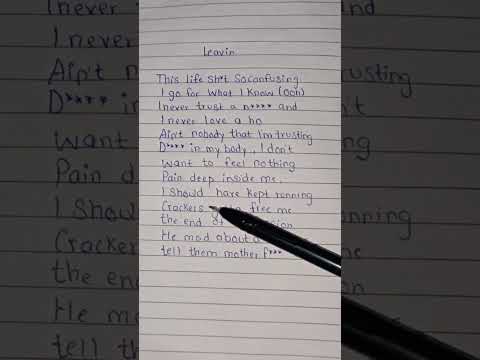 Leavin
This life sh*t So canfusing
I go for what I know (Ooh)
I never trust a n**** and
I never love a ho
Ain't nobody that I'm trusting
D**** in my body, I don't
want to feel nothing
Pain deep inside me.
I should have kept running
Crackers free me
the end of
He mad about
tell them mother f***